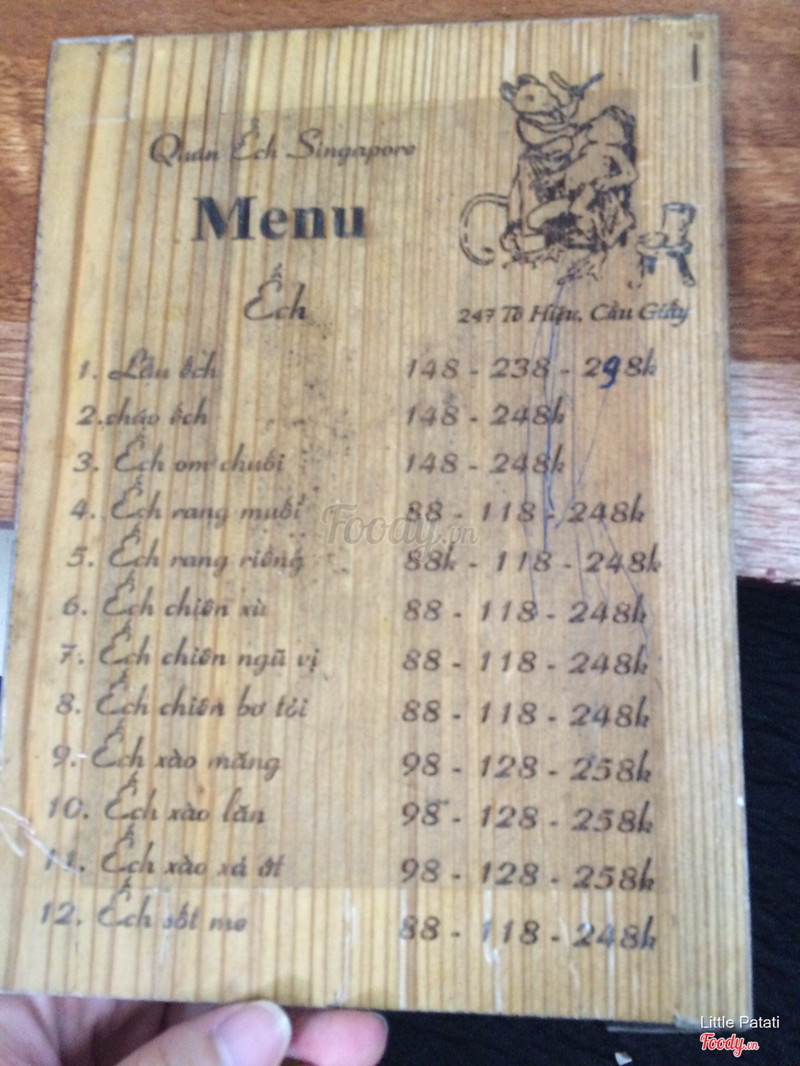 Quán Ếch Singapore
Menu
Ếch
247 Tô Hiệu, Cầu Giấy
1. Lẩu ếch 148 - 238 - 298k
2.cháo ếch 148 - 248k
3. Ếch om chuối 148 - 248k
4. Ếch rang muối 88 - 118 - 248k
5. Ếch rang riềng 88k - 118 - 248k
6. Ếch chiên xù 88 - 118 - 248k
7. Ếch chiên ngũ vị 88 - 118 - 248k
8. Ếch chiên bơ tỏi 88 - 118 - 248k
9. Ếch xào măng 98 - 128 - 258k
10. Ếch xào lăn 98 - 128 - 258k
11. Ếch xào xả ớt 98 - 128 - 258k
12. Ếch sốt me 88 - 118 - 248k
Foody.vn
Little Patati
Foody.vn